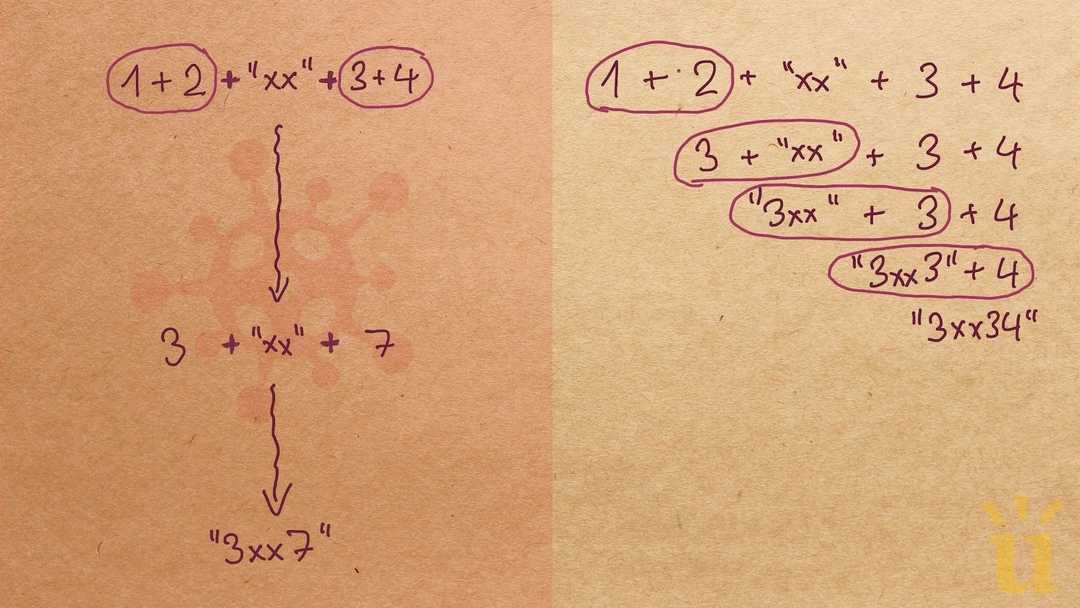 1 + 2 + "xx" + 3 + 4
3 + "xx" + 7
"3xx7"
1 + 2 + "xx" + 3 + 4
3 + "xx" + 3 + 4
"3xx" + 3 + 4
"3xx3" + 4
"3xx34"
ü